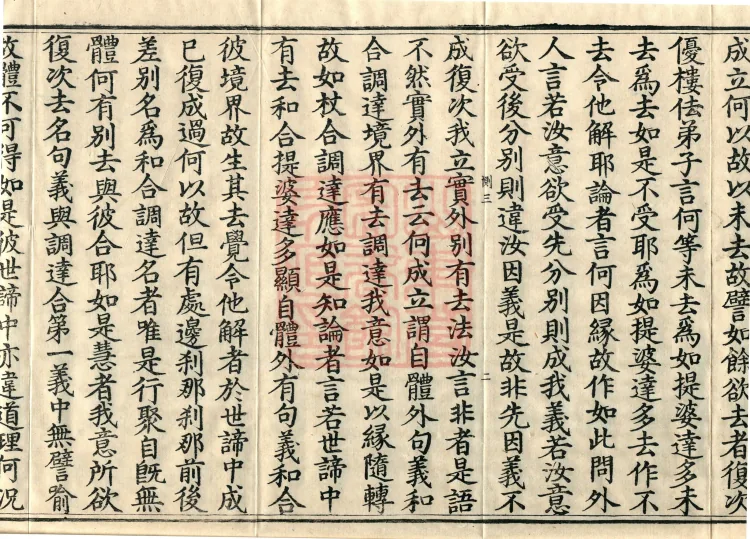 成立何以故以未去故譬如餘欲去者復次
優樓佉弟子言何等未去爲如提婆達多未
去爲去如是不受耶爲如提婆達多去作不
去令他解耶論者言何因縁故作如此問外
人言若汝意欲受先分別則成我義若汝意
欲受後分別則違汝因義是故非先因義不
惻三
二
成復次我立實外别有去法汝言非者是語
不然實外有去云何成立謂自體外句義和
合調達境界有去調達我意如是以緣隨轉
故如杖合調達應如是知論者言若世諦中
有去和合提婆達多顯自體外有句義和合
彼境界故生其去覺令他解者於世諦中成
巳復成過何以故但有處邊刹那刹那前後
差别名爲和合調達名者唯是行聚自既無
體何有别去與彼合耶如是慧者我意所欲
復次去名句義與調達合第一義中無譬喻
故體不可得如是彼世諦中亦違道理何況